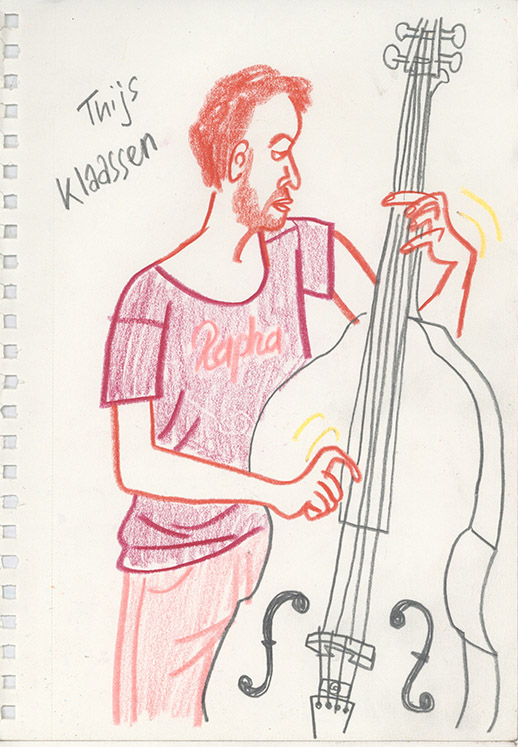 Thijs
Klaassen
Rapha